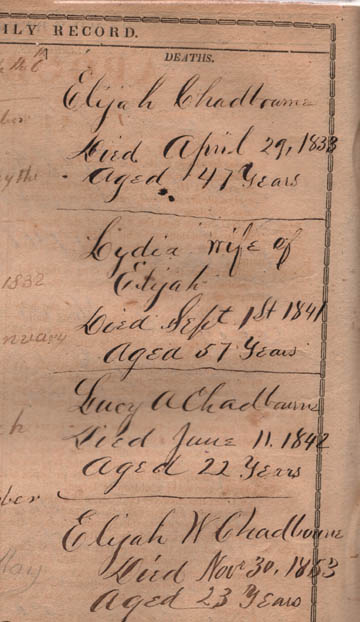 ILY RECORD.
DEATHS.
Elijah Chadbourne
Died April 29, 1833
Aged 47 Years
Lydia wife of
Elijah
1832
Died Sept 1st 1841
nuary
Aged 57 Years
Lucy A Chadbourne
Died June 11. 1842
Aged 22 Years
ber
Elijah W Chadbourne
Died Nov 30, 1853
May
Aged 23 Years